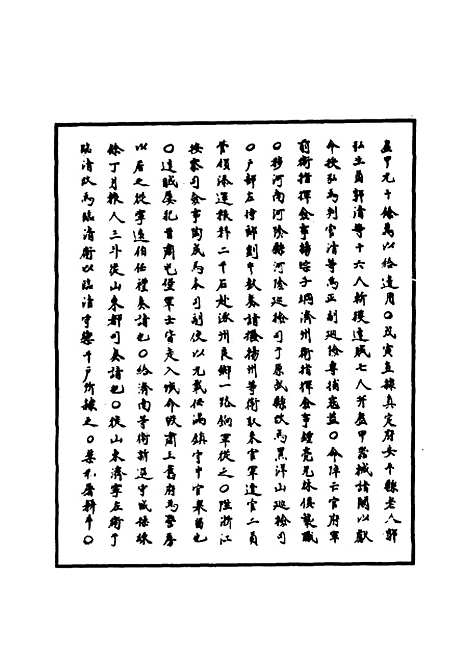 盔甲九千餘萬以給邊用○戊寅直隸真定府安平縣老人郭
弘生員郭清等十六人斬獲達賊七人并盔甲器械諸閣以獻
命授弘為判官清等為正副巡檢專捕寇盜○命陣亡官府軍
前衛指揮僉事楊宗子綱濟州衛指揮僉事鍾亮兄昧俱襲職
○移河南河陰縣河陰巡檢司于原武縣改為黑洋山巡檢司
○戶部左侍郎劉中敷奏請撥揚州等衛取來官軍達官二員
管領添運糧料二千石赴涿州良鄉一路餉軍從之○陞浙江
按察司僉事陶成為本司副使以九載任滿鎮守中官衆留也
○達賊屢犯甘肅屯慢軍士皆走入城命改肅王舊府為營房
以居之從寧遠伯任禮奏請也○給濟南等衛新選守城操練
餘丁月糧人三斗從山東都司奏請也○從山東濟寧左衛于
臨清改為臨清衛以臨清守禦千戶所隸之○葉不屑料平○